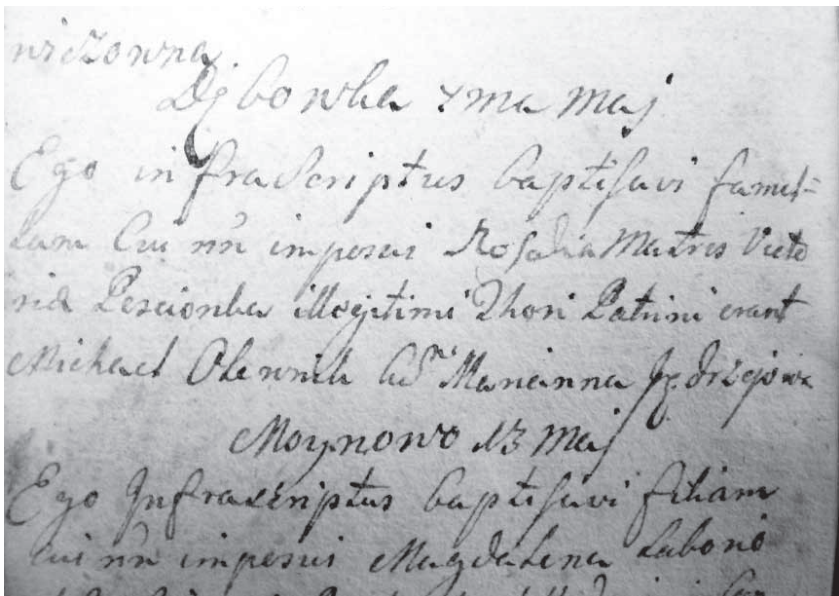 wiczowna
Dębowka 7ma Maj
Ego infrascriptus baptisavi famel=
lam Cui nn̄ imposui Rosalia Matris Victo
ria Pescionka illegitimi Thori Patrini erant
Michael Olewnik Cum Marianna Jędrzejowa
Moynowo 13 Maj
Ego Infrascriptus baptisavi filiam
cui nn̄ imposui Magdalena Laborio